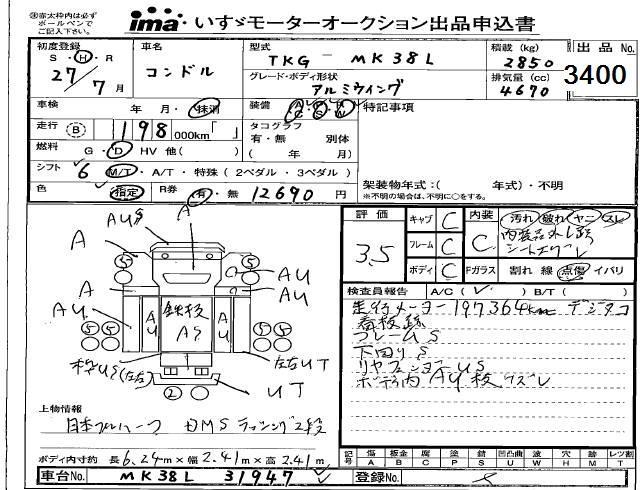 ㊟赤太枠内は必ず
ボールペンで
ご記入下さい。
ima いすゞモーターオークション出品申込書
初度登録
S・H・R
27/7月
車名
コンドル
型式
TKG - MK38L
グレード・ボディ形状
アルミウイング
積載(kg)
2850
排気量(cc)
4670
出品No.
3400
車検 年 月・抹消
装備
特記事項
走行 B 198 000km「 」
タコグラフ
有・無 別体
( 年 月)
燃料 G・D HV 他( )
シフト 6 M/T・A/T・特殊(2ペダル・3ペダル)
架装物年式:( 年式)・不明
※不明の場合は、不明に○をする。
色 指定 R券 有・無 12690円
評価
3.5
キャブ C
フレーム C
ボディ C
内装 C
Fガラス
汚れ 破れ ヤニ スレ
内装品外し跡
シートズレ
割れ 線 点傷 イバリ
検査員報告 A/C( ) B/T( )
走行メーター197364km デジタコ
看板跡
フレームS
下回りS
リヤフェンダーUS
ボデー内AU板ワズレ
AUS
A
A
5
5
AU
A
AU
AU
5 5
5 5
AU
鉄板
AS
AU
枠US(左右)
左右UT
2
UT
上物情報
日本フルハーフ
ラッシング2段
ボディ内寸約 長6.24m×幅2.41m×高2.41m
車台No. MK38L 31947
記号 傷A 板金B 腐C 塗P 錆S 凹凸曲U 波W 穴H 跡M レツ割T
登録No.